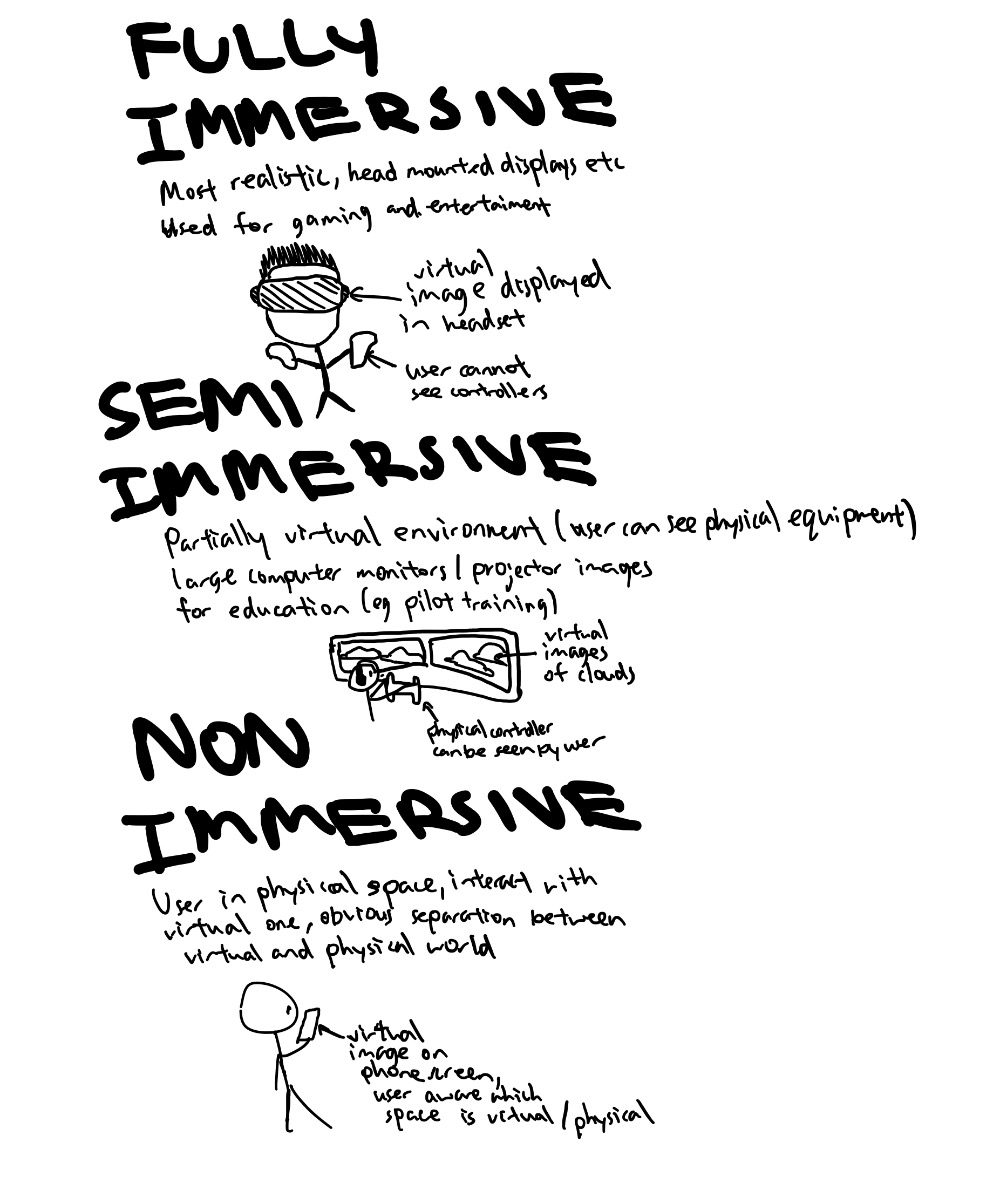 FULLY
IMMERSIVE
Most realistic, head mounted displays etc
Used for gaming and entertaiment
virtual
image displayed
in headset
user cannot
see controllers
SEMI
IMMERSIVE
Partially virtual environment (user can see physical equipment)
large computer monitors / projector images
for education (eg pilot training)
virtual
images
of clouds
physical controller
can be seen by user
NON
IMMERSIVE
User in physical space, interact with
virtual one, obvious separation between
virtual and physical world
virtual
image on
phone screen,
user aware which
space is virtual / physical